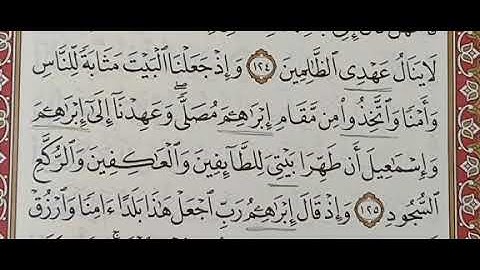 لَا يَنَالُ عَهْدِى ٱلظَّـٰلِمِينَ ١٢٤ وَإِذْ جَعَلْنَا ٱلْبَيْتَ مَثَابَةً لِّلنَّاسِ
وَأَمْنًا وَٱتَّخِذُوا۟ مِن مَّقَامِ إِبْرَٰهِـۧمَ مُصَلًّى ۖ وَعَهِدْنَآ إِلَىٰٓ إِبْرَٰهِـۧمَ
وَإِسْمَـٰعِيلَ أَن طَهِّرَا بَيْتِىَ لِلطَّآئِفِينَ وَٱلْعَـٰكِفِينَ وَٱلرُّكَّعِ
ٱلسُّجُودِ ١٢٥ وَإِذْ قَالَ إِبْرَٰهِـۧمُ رَبِّ ٱجْعَلْ هَـٰذَا بَلَدًا ءَامِنًا وَٱرْزُقْ